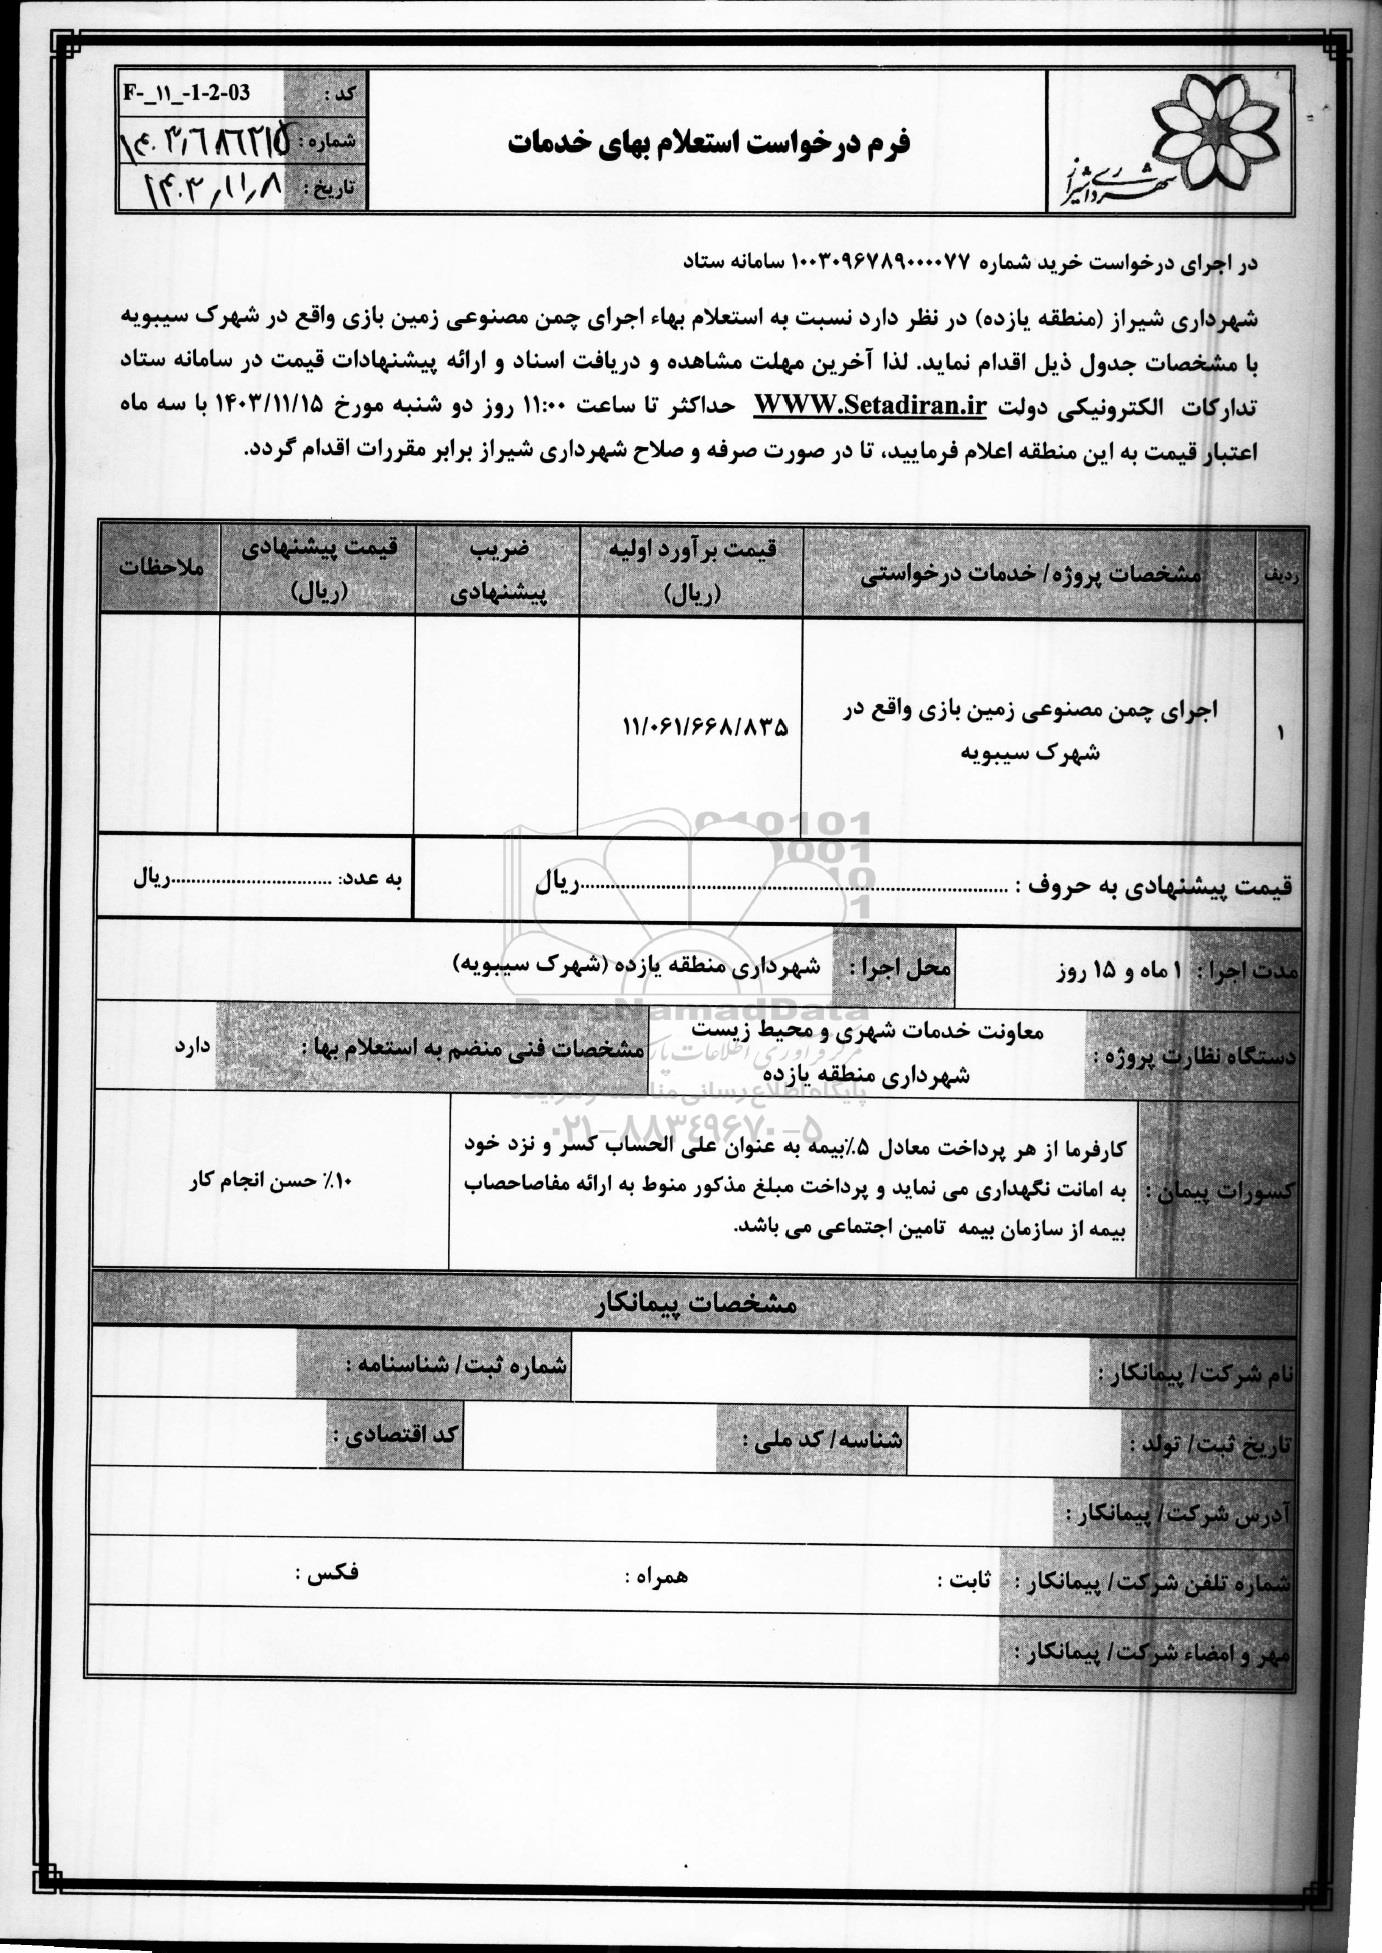 شهرداری شیراز
فرم درخواست استعلام بهای خدمات
کد : F-_۱۱_-1-2-03
شماره :
تاریخ : ۱۴۰۳/۱۱/۸
در اجرای درخواست خرید شماره ۱۰۰۳۰۹۶۷۸۹۰۰۰۰۷۷ سامانه ستاد
شهرداری شیراز (منطقه یازده) در نظر دارد نسبت به استعلام بهاء اجرای چمن مصنوعی زمین بازی واقع در شهرک سیبویه
با مشخصات جدول ذیل اقدام نماید. لذا آخرین مهلت مشاهده و دریافت اسناد و ارائه پیشنهادات قیمت در سامانه ستاد
تدارکات الکترونیکی دولت WWW.Setadiran.ir حداکثر تا ساعت ۱۱:۰۰ روز دو شنبه مورخ ۱۴۰۳/۱۱/۱۵ با سه ماه
اعتبار قیمت به این منطقه اعلام فرمایید، تا در صورت صرفه و صلاح شهرداری شیراز برابر مقررات اقدام گردد.
ردیف مشخصات پروژه/ خدمات درخواستی قیمت برآورد اولیه (ریال) ضریب پیشنهادی قیمت پیشنهادی (ریال) ملاحظات
۱ اجرای چمن مصنوعی زمین بازی واقع در
شهرک سیبویه
۱۱/۰۶۱/۶۶۸/۸۳۵
قیمت پیشنهادی به حروف : ........................................ریال به عدد: ................................ریال
مدت اجرا : ۱ ماه و ۱۵ روز محل اجرا : شهرداری منطقه یازده (شهرک سیبویه)
دستگاه نظارت پروژه : معاونت خدمات شهری و محیط زیست
شهرداری منطقه یازده
مشخصات فنی منضم به استعلام بها : دارد
کسورات پیمان : کارفرما از هر پرداخت معادل ۵٪بیمه به عنوان علی الحساب کسر و نزد خود
به امانت نگهداری می نماید و پرداخت مبلغ مذکور منوط به ارائه مفاصاحصاب
بیمه از سازمان بیمه تامین اجتماعی می باشد.
۱۰٪ حسن انجام کار
مشخصات پیمانکار
نام شرکت/ پیمانکار : شماره ثبت/ شناسنامه :
تاریخ ثبت/ تولد : شناسه/ کد ملی : کد اقتصادی :
آدرس شرکت/ پیمانکار :
شماره تلفن شرکت/ پیمانکار : ثابت : همراه : فکس :
مهر و امضاء شرکت/ پیمانکار :
ParsNamadData
۰۲۱-۸۸۳۴۹۶۷۰-۵